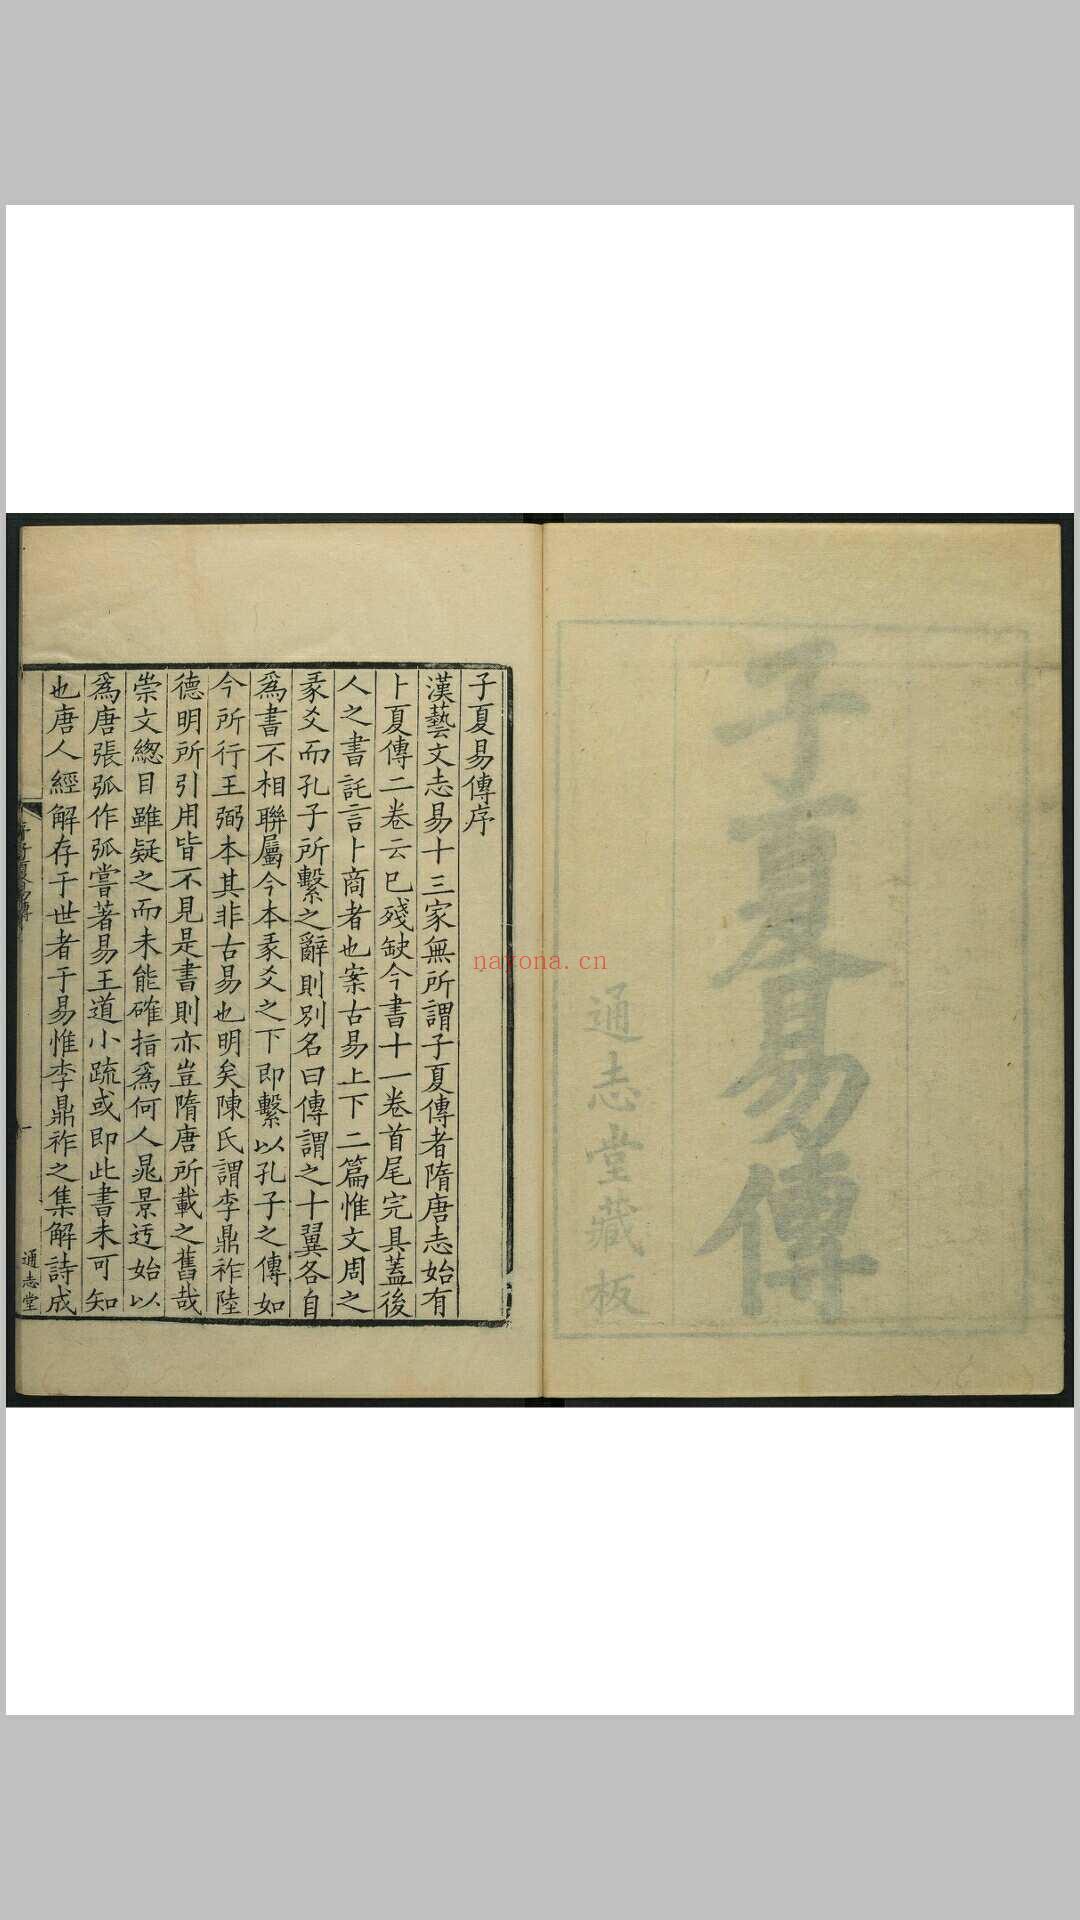 子夏易傳
通志堂藏板
子夏易傳序
漢藝文志易十三家無所謂子夏傳者隋唐志始有
卜夏傳二卷云已殘缺今書十一卷首尾完具蓋後
人之書託言卜商者也案古易上下二篇惟文周之
彖爻而孔子所繫之辭則別名曰傳謂之十翼各自
爲書不相聯屬今本彖爻之下即繫以孔子之傳如
今所行王弼本其非古易也明矣陳氏謂李鼎祚陸
德明所引用皆不見是書則亦豈隋唐所載之舊哉
崇文緫目雖疑之而未能確指爲何人晁景迃始以
爲唐張弧作弧嘗著易王道小疏或即此書未可知
也唐人經解存于世者于易惟李鼎祚之集解詩成
序子夏易傳
一
通志堂
nayona.cn